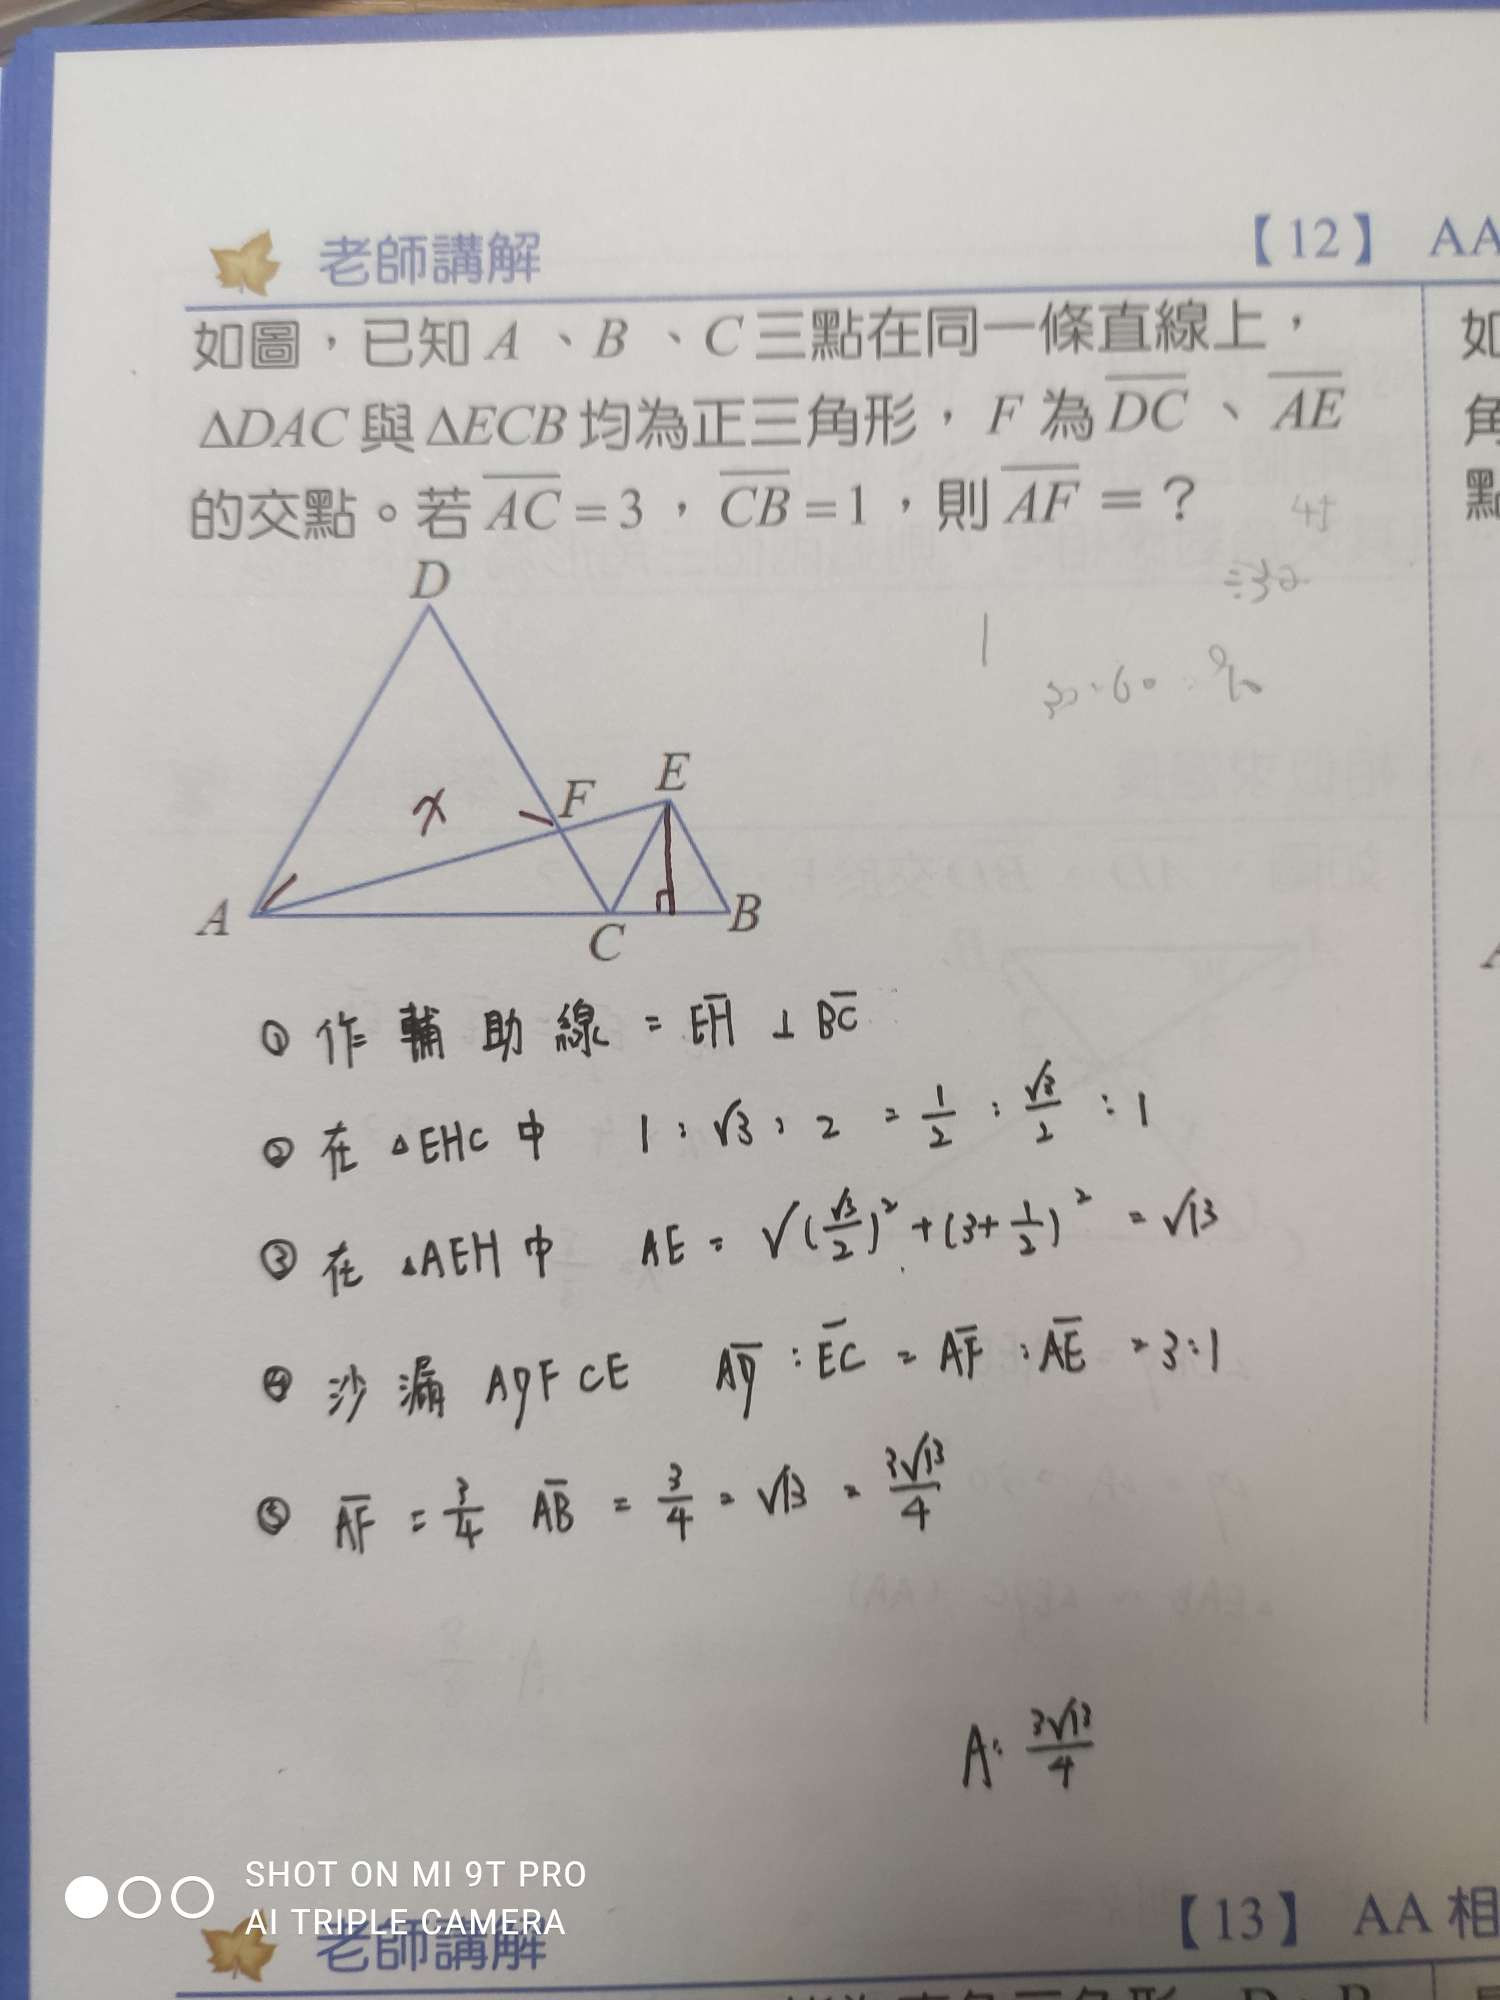 老師講解
【12】 AA
如圖，已知 A 、B 、C 三點在同一條直線上，
ΔDAC 與 ΔECB 均為正三角形，F 為 DC 、 AE
的交點。若 AC = 3 ， CB = 1 ，則 AF = ？
如
角
點
D
E
F
x
A
C
B
① 作輔助線 = EH ⊥ BC
② 在 △EHC 中 1 : √3 : 2 = 1/2 : √3/2 : 1
③ 在 △AEH 中 AE = √(√3/2)² + (3+1/2)² = √13
④ 沙漏 ADFCE AD : EC = AF : AE = 3:1
⑤ AF = 3/4 AB = 3/4 = √13 = 3√13/4
A: 3√13/4
SHOT ON MI 9T PRO
AI TRIPLE CAMERA
老師講解
【13】 AA 相